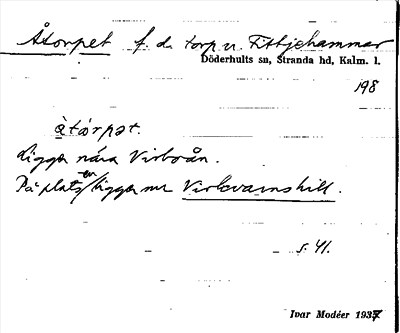 Åtorpet f. d. torp u. Fittjehammar
Döderhults sn, Stranda hd, Kalm. l.
198
àtórpət.
Ligger nära Virboån.
På platsen ligger nu Virkvarnshill.
s. 41.
Ivar Modéer 1937